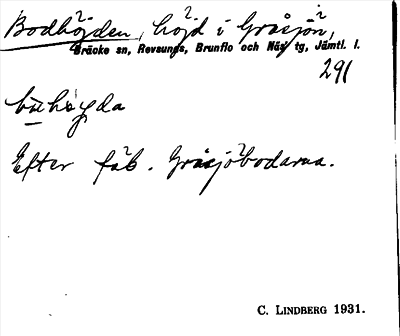 Bodhöjden, höjd i Gråsjön,
Bräcke sn, Revsunds, Brunflo och Näs tg, Jämtl. l.
291
bùhø̀gda
Efter fäb. Gråsjöbodarna.
C. LINDBERG 1931.